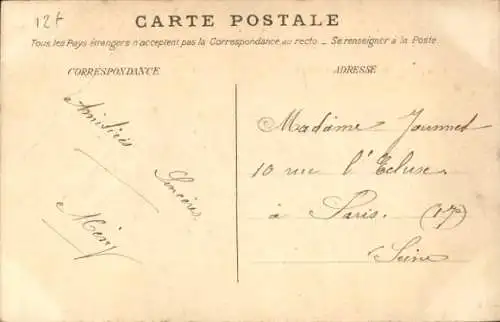 12f
CARTE POSTALE
Tous les Pays étrangers n'acceptent pas la Correspondance au recto. - Se renseigner à la Poste.
CORRESPONDANCE
Amitiés
Sincères
ADRESSE
Madame Jaunnet
10 rue l'Ecluse.
à Paris. (17e)
Seine